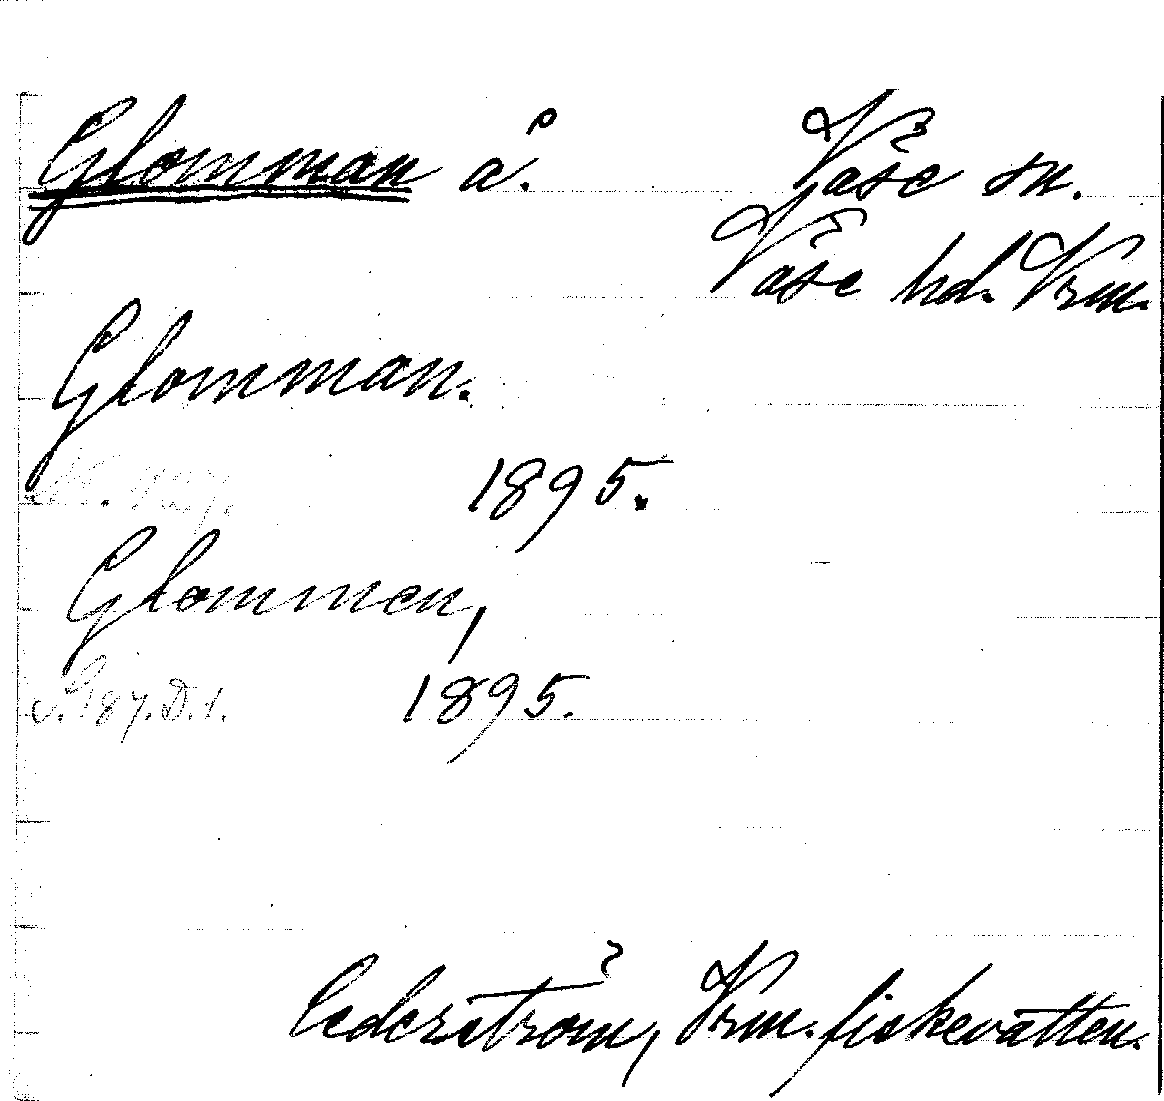 Glomman å. Väse sn.
Väse hd. Vrm.
Glomman.
1895.
Glommen,
s. 187. D. 1. 1895.
Cederström, Vrm. fiskevatten.